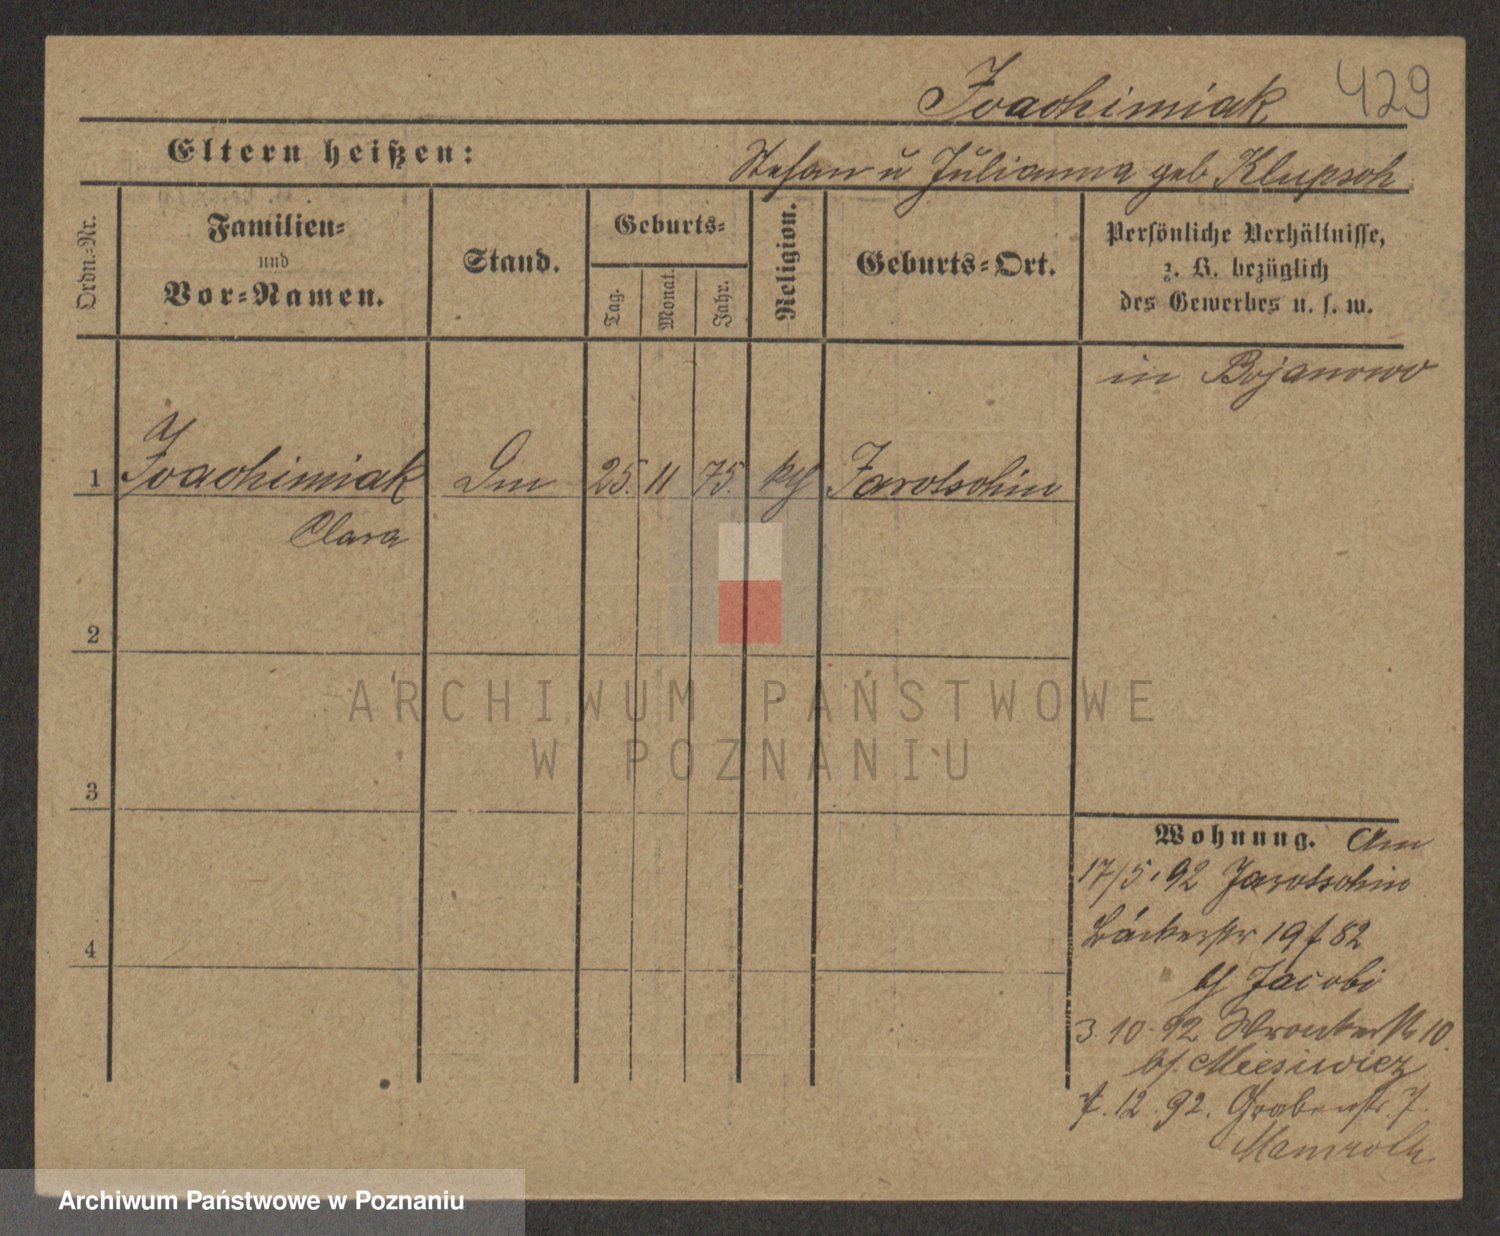 Joachimiak 429
Eltern heißen: Stefan u Julianna geb Klupsch
Ordn.-Nr.
Familien-
und
Vor-Namen.
Stand.
Geburts-
Tag.
Monat.
Jahr.
Religion.
Geburts-Ort.
Persönliche Verhältnisse,
z. B. bezüglich
des Gewerbes u. s. w.
in Bojanowo
1 Joachimiak Dm 25. 11 75. kth Jarotschin
Clara
2
3
4
Wohnung. Am
17/5.92 Jarotschin
Bäckerstr 19 f 82
bf Jacobi
3.10.92 Wronkerstr 10.
bf.
7.12.92. Grabenstr. 7.
ARCHIWUM PAŃSTWOWE
W POZNANIU
Archiwum Państwowe w Poznaniu